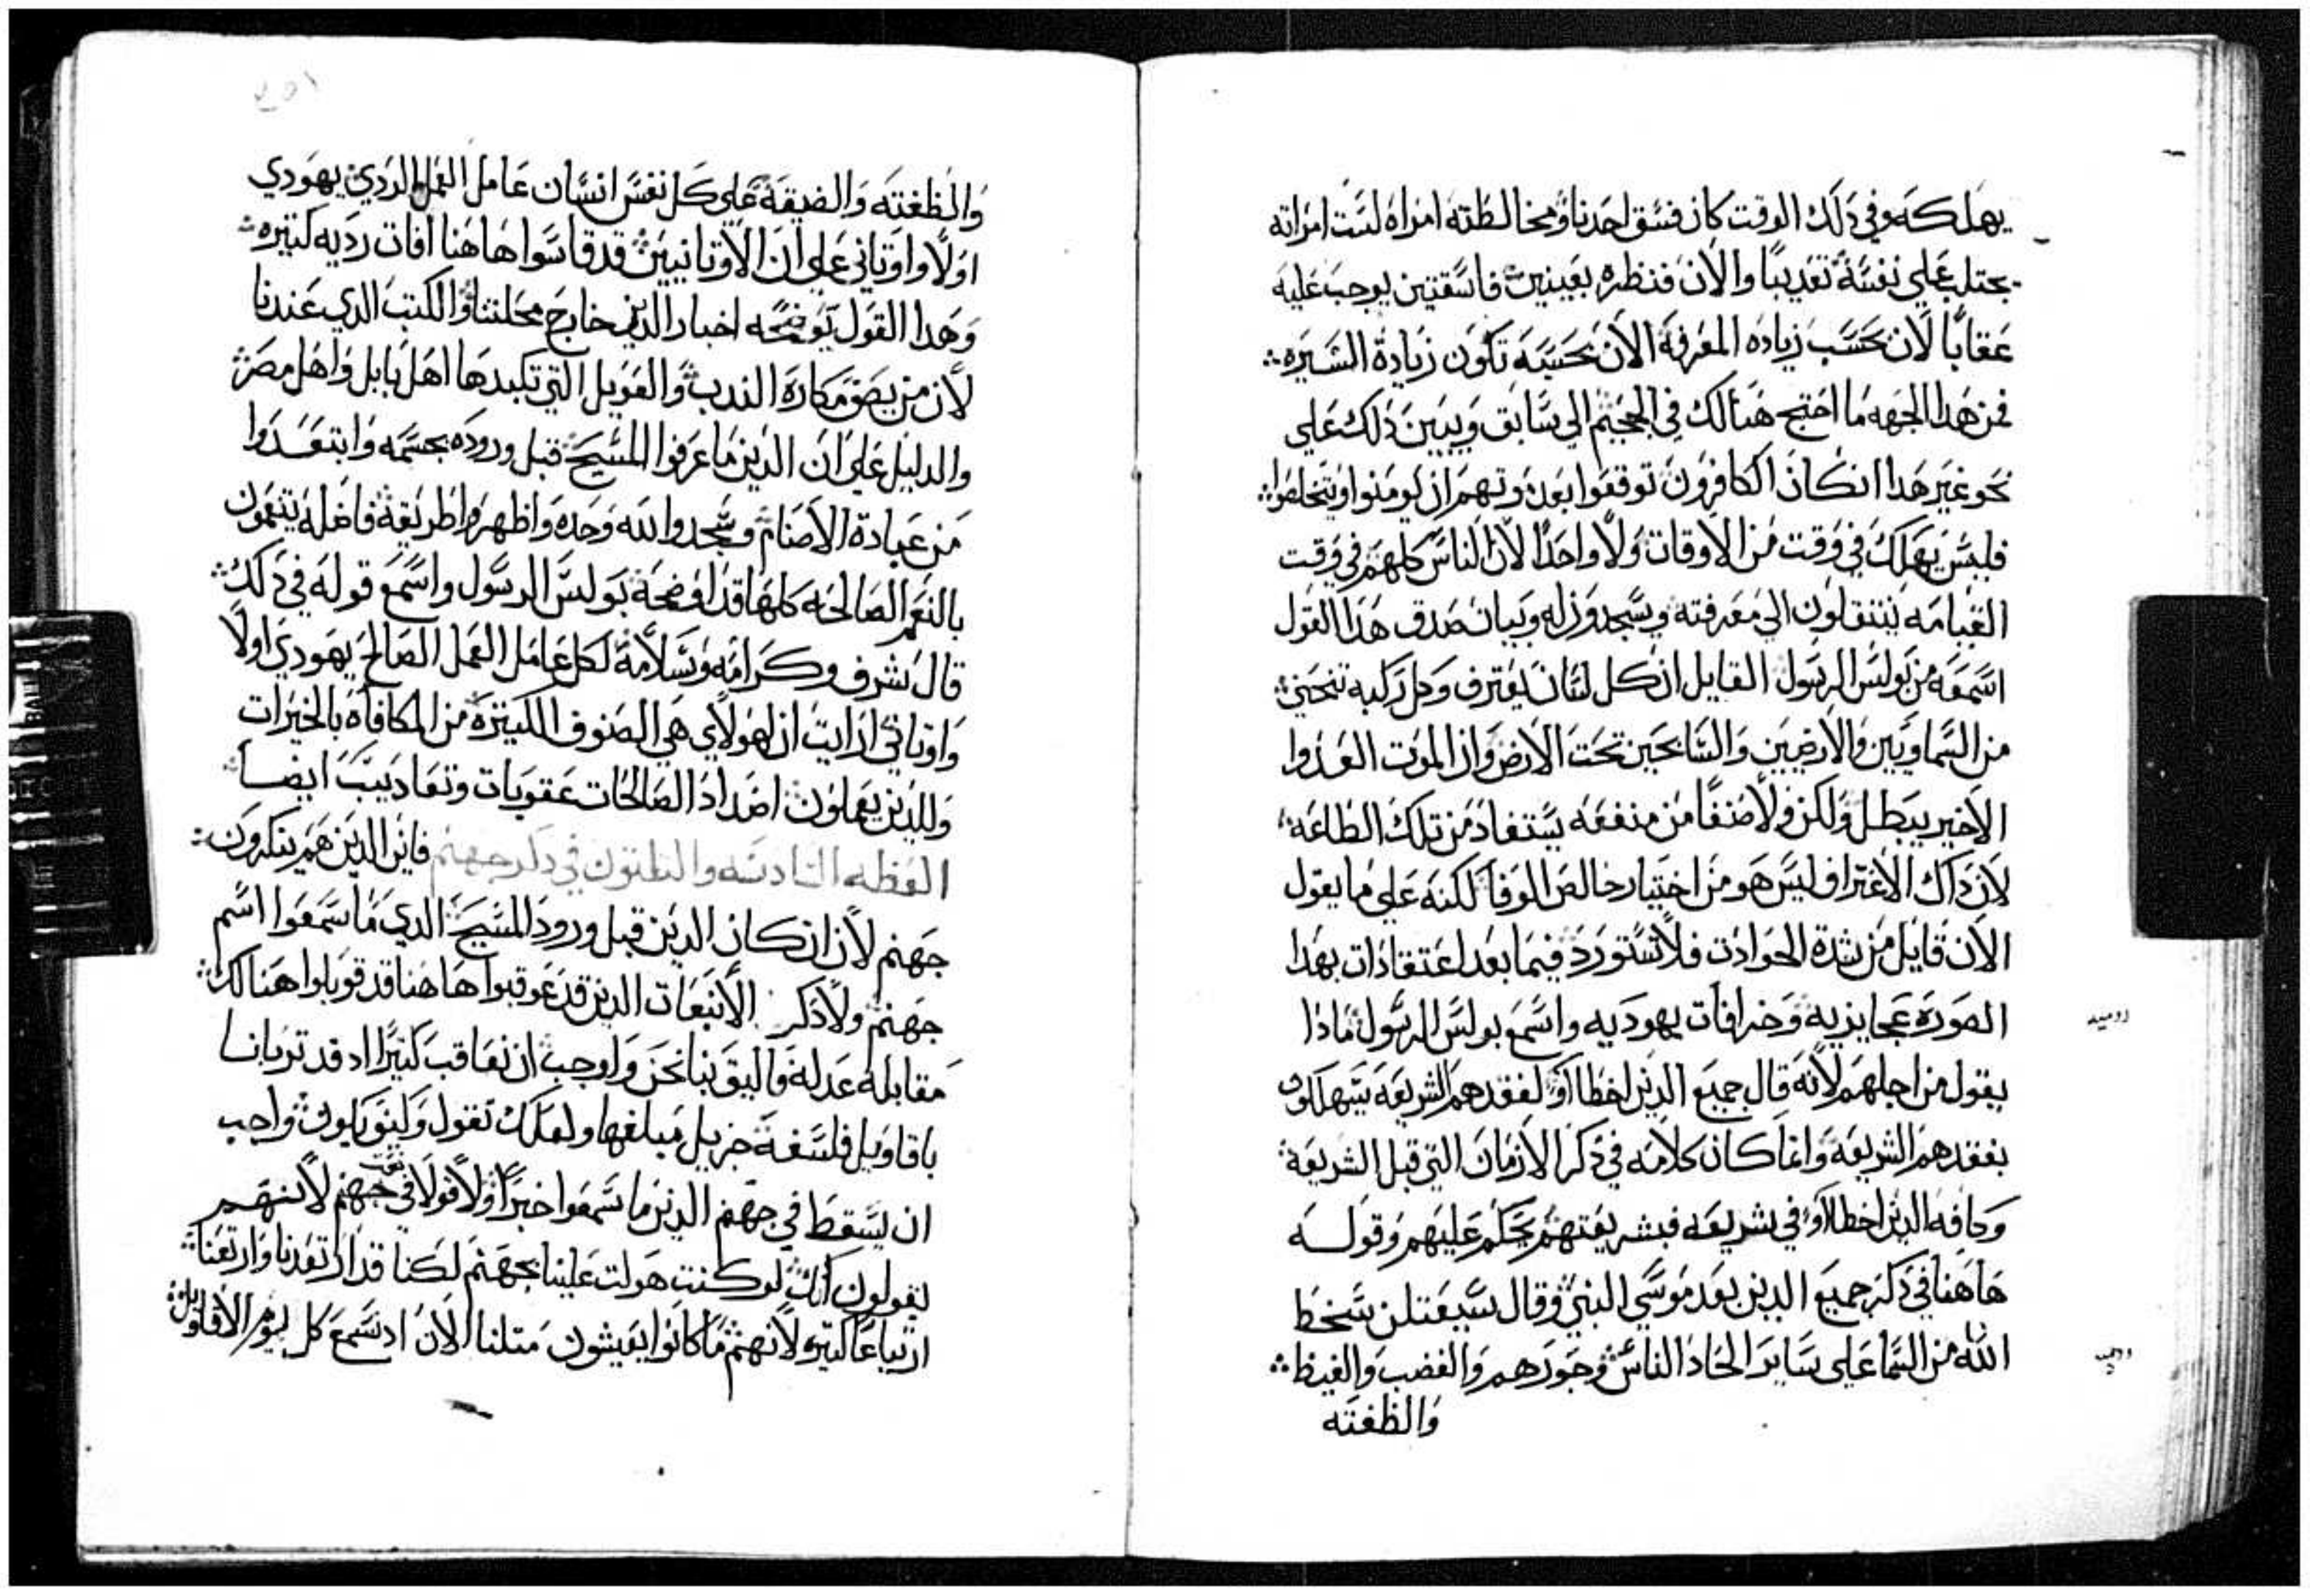 يهلكه وفي دلك الوقت كان فسق احدنا ومخالطته امراه ليست امراته
يجتلب علي نفسه تعديبًا والان فنظره بعينين فاسقتين يوجب عليه
عقابًا لان بحسب زياده المعرفه الان بحسبه تكون زيادة الشريره
فمن هدا الجهه ما احتج هنالك في الجحيم الي سابق ويبين دلك علي
نحو غير هدا انكان الكافرون توقعوا بعد موتهم ان يومنوا ويتخلصوا
فليس يهلك في وقت من الاوقات ولا واحدًا لان الناس كلهم في وقت
القيامه ينتقلون الي معرفته ويسجدون له وبيان صدق هدا القول
اسمعه من بولس الرسول القايل ان كل لسان يعترف وكل ركبه تنحني
من السماويين والارضيين والسايحين تحت الارض وان الموت العدوا
الاخير يبطل ولكن ولا صنفًا من منفعه يستفاد من تلك الطاعه
لان داك الاعتراف ليس هو من اختيار خالص الوفا لكنه علي ما يقول
الان قايل من شدة الحوادت فلا تستورد فيما بعد اعتقادات بهدا
الصوره عجايزيه وخرافات يهوديه واسمع بولس الرسول مادا
يقول من اجلهم لانه قال جميع الدين اخطااوا لفقدهم الشريعه يستهلكون
بفقدهم الشريعه وانما كان كلامه في دكر الازمان التي قبل الشريعه
وكافه الدين اخطااوا في شريعه فبشريعتهم يحكم عليهم وقوله
هاهنا في دكر جميع الدين بعد موسي النبي وقال سيعتلن سخط
الله من السما علي ساير الحاد الناس وجورهم والغضب والغيظ
والظغته
والظغته والضيقه علي كل نفس انسان عامل العمل الردي يهودي
اولا واوتاني علي ان الاوتانيين قد قاسوا هاهنا افات رديه كتيره
وهدا القول توضحه اخبار الدين خارج محلتنا والكتب الدي عندنا
لان من يصف مكاره الندب والعويل التي تكبدها اهل بابل واهل مصر
والدليل علي ان الدين ما عرفوا المسيح قبل وروده بجسمه وابتعدوا
من عبادة الاصنام وسجدوا لله وحده واظهروا طريقة فاضله يتنعمون
بالنعم الصالحه كلها قد اوضحه بولس الرسول واسمع قوله في دلك
قال شرف وكرامه وسلامه لكل عامل العمل الصالح يهودي اولا
واوتاني ارايت ان لهولاي هي الصنوف الكتيره من المكافاه بالخيرات
وللدين يعملون اضداد الصالحات عقوبات وتعاديب ايضا
العظه السادسه والتلتون في دكر جهنم فاين الدين هم ينكرون
جهنم لان ان كان الدين قبل ورود المسيح الدي ما سمعوا اسم
جهنم ولا دكر الانبعات الدين قد عوقبوا هاهنا قد قوبلوا هنالك
مقابله عدله فاليق بنا نحن واوجب ان نعاقب كتيرًا اد قد تربانا
باقاويل فلسفة جزيل مبلغها ولعلك تقول وكيف يكون واجب
ان يسقط في جهنم الدين ما سمعوا خبرًا ولا قولا في جهنم لانهم
يقولون انك لو كنت هولت علينا بجهنم لكنا قد ارتعدنا وارتعنا
ارتياعًا كتيرًا لانهم ما كانوا يعيشون متلنا الان اد نسمع كل يوم الاقاويل